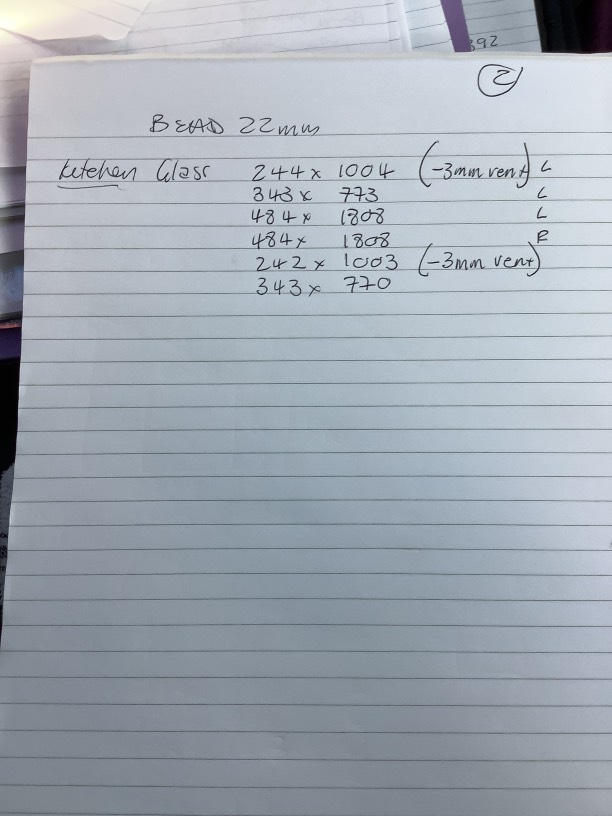 392
2
BEAD 22mm
Kitchen Glass 244 x 1004 (-3mm vent) L
343 x 773 L
484 x 1808 L
484 x 1808 R
242 x 1003 (-3mm vent)
343 x 770